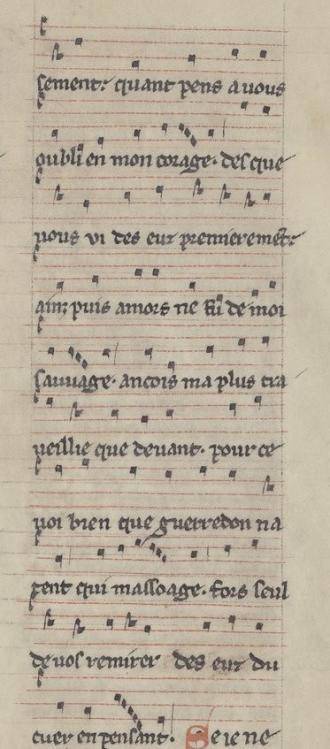 sement. quant pens a vous
oubli en mon corage. des que
vous vi des eux premieremēt.
ainz puis amors ne fu de moi
sauuage. ancois ma plus tra
ueillie que deuant. pour ce
uoi bien que guerredon na
tent qui massoage. fors seul
de vos remirer des eux du
cuer en pensant. Se ie ne